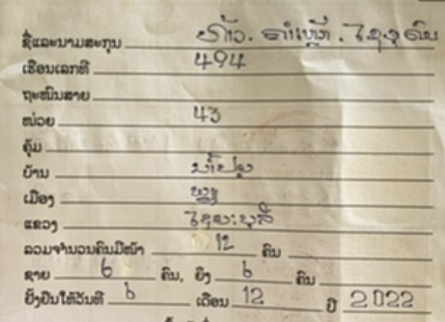 ຊື່ແລະນາມສະກຸນ ທ້າວ. ຄຳເຫຼີ
ເຮືອນເລກທີ 494
ຖະໜົນສາຍ
ໜ່ວຍ 43
ຄຸ້ມ
ບ້ານ ນ້ຳປຸຍ
ເມືອງ
ແຂວງ ໄຊຍະບູລີ
ລວມຈຳນວນຄົນມີໜ້າ 12 ຄົນ
ຊາຍ 6 ຄົນ, ຍິງ 6 ຄົນ
ຍັ້ງຢືນໃຫ້ວັນທີ 6 ເດືອນ 12 ປີ 2022